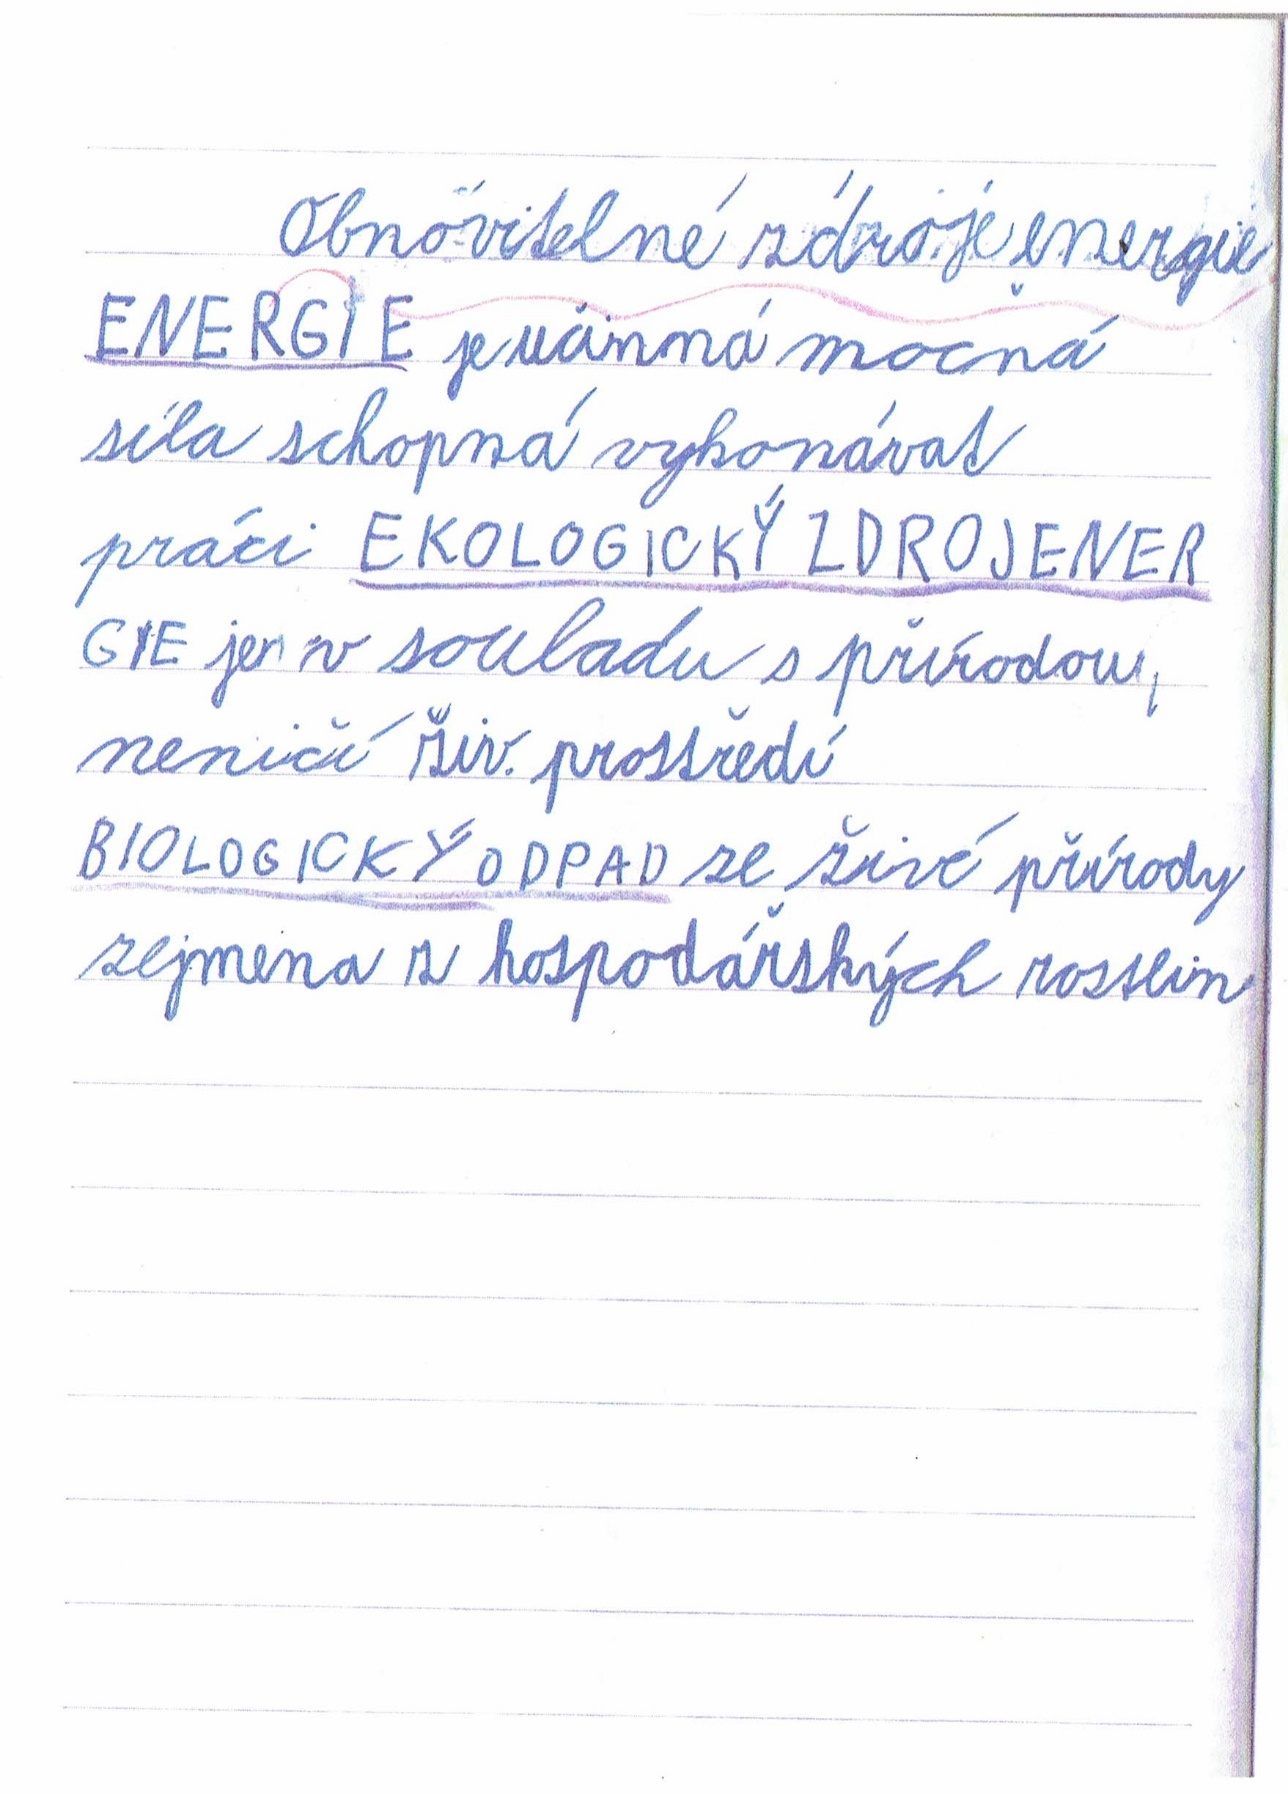 Obnovitelné zdroje energie
ENERGIE je účinná mocná
síla schopná vykonávat
práci EKOLOGICKÝ ZDROJ ENER
GIE jen v souladu s přírodou,
neničí živ. prostředí
BIOLOGICKÝ ODPAD ze živé přírody
zejmena z hospodářských rostlin